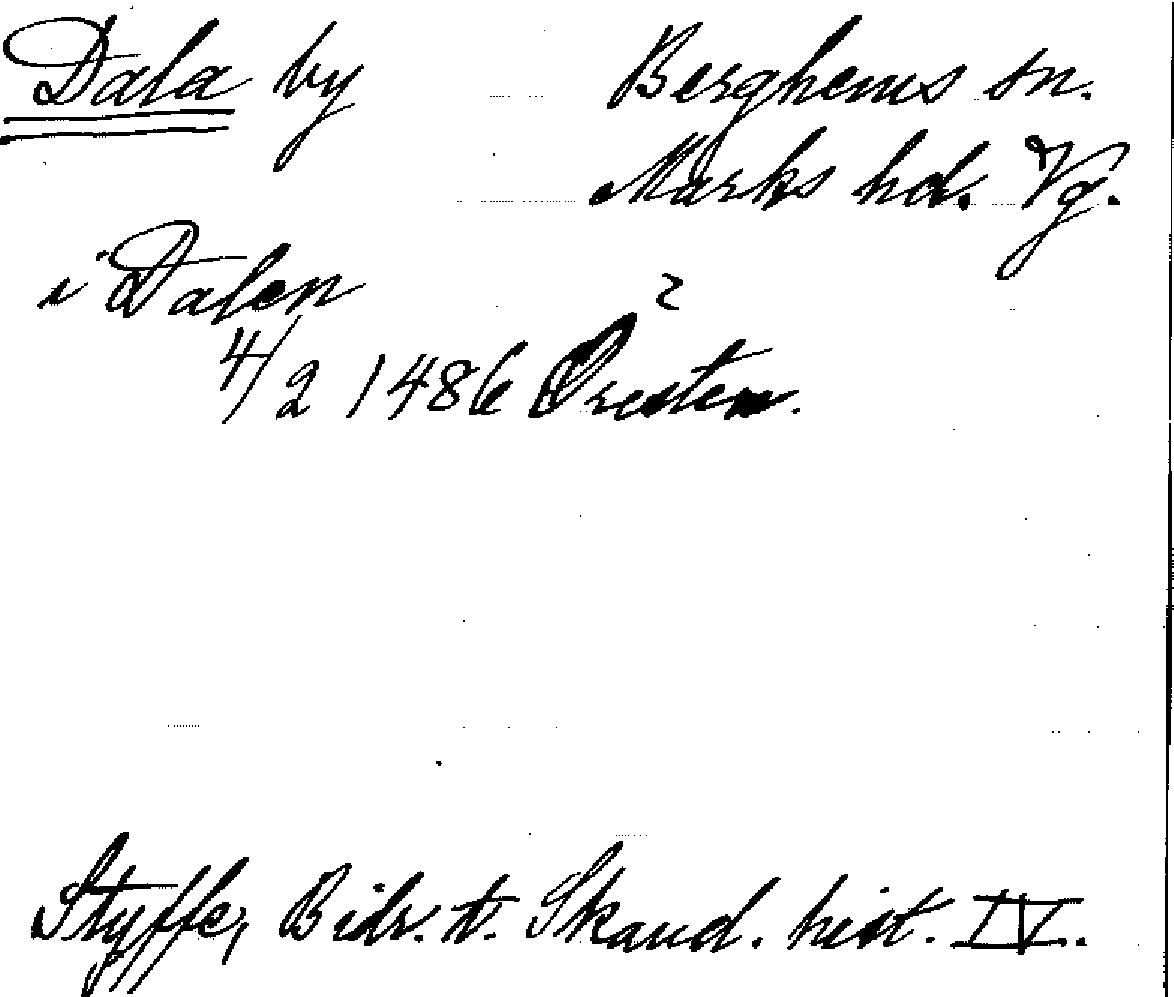 Dala by Berghems sn.
Marks hd. Vg.
i Dalen ?
4/2 1486 Presten.
Styffe, Bidr. t. Skand. hist. IV.